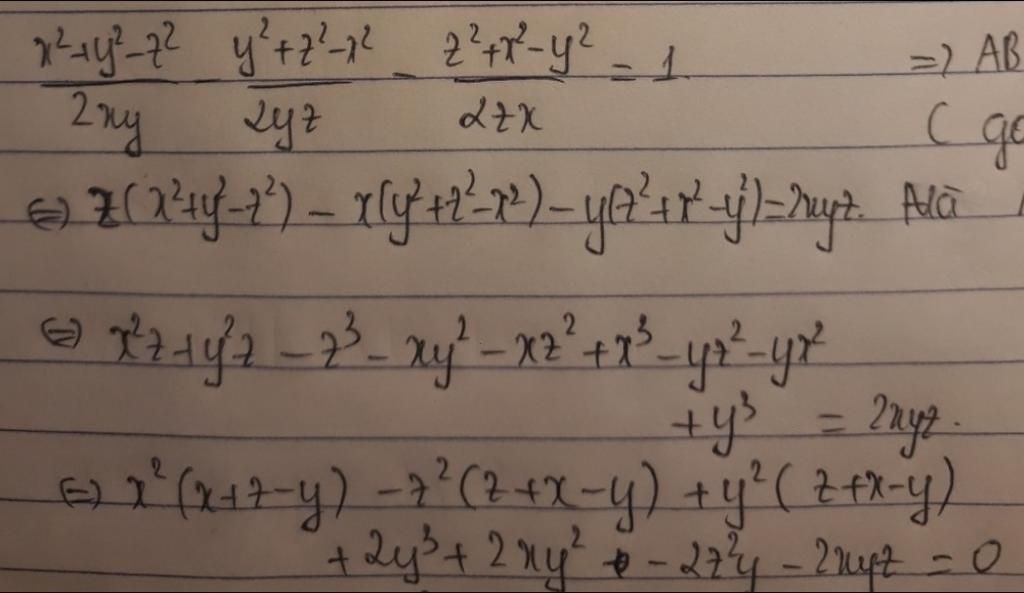 x²+y²-z²/2xy - y²+z²-x²/2yz - z²+x²-y²/2zx = 1 => AB
(
⇔ z(x²+y²-z²) - x(y²+z²-x²) - y(z²+x²-y²)=2xyz.
⇔ x²z+y²z - z³ - xy² - xz² + x³ - yz² - yx²
+ y³ = 2xyz.
⇔ x²(x+z-y) - z²(z+x-y) + y²(z+x-y)
+ 2y³ + 2xy² - 2z²y - 2xyz = 0